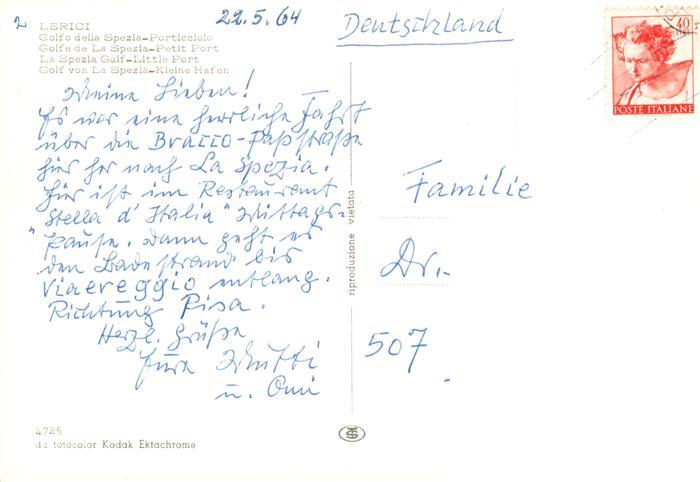 2
LERICI
Golfo della Spezia-Porticciolo
Golfe de La Spezia-Petit Port
La Spezia Gulf-Little Port
Golf von La Spezia-Kleine Hafen
22.5.64
Deutschland
40
LIRE
POSTE ITALIANE
Meine Lieben!
Es war eine herrliche Fahrt
über die Bracco-Paßstraße
hier her nach La Spezia.
Hier ist im Restaurant
"Stella d'Italia" Mittags-
pause. Dann geht es
den Badestrand bis
Viareggio entlang.
Richtung Pisa.
Herzl. Grüße
Eure Mutti
u. Omi
Familie
Dr.
507
riproduzione vietata
4725
da fotocolor Kodak Ektachrome